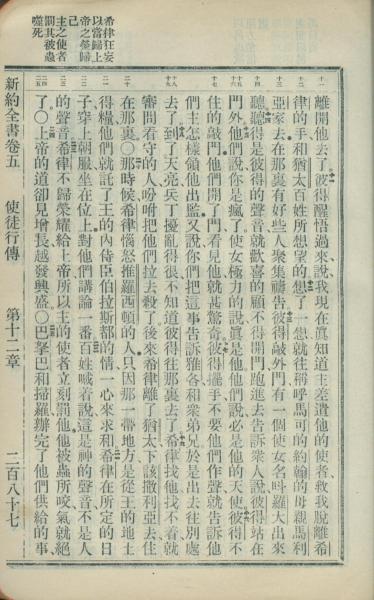 希律狂妄
以當歸上
帝之榮歸
己
主之使者
罰其被蟲
噬死
十一
十二
十三
十四
十五 十六
十七
十八 十九
二十
二一
二二
二三
二四 二五
離開他去了彼得醒悟過來說我現在眞知道主差遣他的使者救我脫離希
律的手和猶太百姓所想望的想了一想就往稱呼馬可的約翰的母親馬利
亞家去在那裏有好些人聚集禱告彼得敲外門有一個使女名叫羅大出來
聽聽得是彼得的聲音就歡喜的顧不得開門跑進去告訴衆人說彼得站在
門外他們說你是瘋了使女極力的說眞是他他們說必是他的天使彼得不
住的敲門他們開了門看見他就甚驚奇彼得擺手不要他們作聲就告訴他
們主怎樣領他出監又說你們把這事告訴雅各和衆弟兄於是出去往別處
去了到了天亮兵丁擾亂得很不知道彼得往那裏去了希律找他找不着就
審問看守的人吩咐把他們拉去殺了後來希律離了猶太下該撒利亞去住
在那裏〇那時候希律惱怒推羅西頓的人只因那一帶地方是從王的地土
得糧他們就託了王的內侍臣伯拉斯都的情一心來求和希律在所定的日
子穿上朝服坐在位上對他們講論一番百姓喊着說這是神的聲音不是人
的聲音希律不歸榮耀給上帝所以主的使者立刻罰他他被蟲所咬氣就絕
了〇上帝的道卻見增長越發興盛〇巴拏巴和掃羅辦完了他們供給的事
新約全書卷五 使徒行傳 第十二章 二百八十七